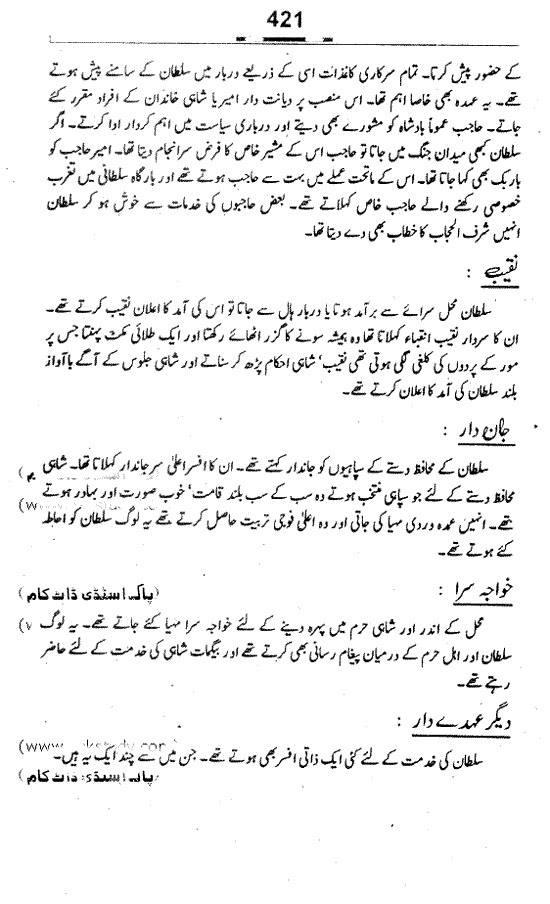 421
کے حضور پیش کرتا۔ تمام سرکاری کاغذات اسی کے ذریعے دربار میں سلطان کے سامنے پیش ہوتے
تھے۔ یہ عہدہ بھی خاصا اہم تھا۔ اس منصب پر دیانت دار امیر یا شاہی خاندان کے افراد مقرر کئے
جاتے۔ حاجب عموماً بادشاہ کو مشورے بھی دیتے اور درباری سیاست میں اہم کردار ادا کرتے۔ اگر
سلطان کبھی میدان جنگ میں جاتا تو حاجب اس کے مشیر خاص کا فرض سرانجام دیتا تھا۔ امیر حاجب کو
باربک بھی کہا جاتا تھا۔ اس کے ماتحت عملے میں بہت سے حاجب ہوتے تھے اور بارگاہ سلطانی میں تقرب
خصوصی رکھنے والے حاجب خاص کہلاتے تھے۔ بعض حاجبوں کی خدمات سے خوش ہو کر سلطان
انہیں شرف الحجاب کا خطاب بھی دے دیتا تھا۔
نقیب :
سلطان محل سرائے سے برآمد ہوتا یا دربار ہال سے جاتا تو اس کی آمد کا اعلان نقیب کرتے تھے۔
ان کا سردار نقیب انقباء کہلاتا تھا وہ ہمیشہ سونے کا گرز اٹھائے رکھتا اور ایک طلائی مکٹ پہنتا جس پر
مور کے پروں کی کلغی لگی ہوتی تھی نقیب، شاہی احکام پڑھ کر سناتے اور شاہی جلوس کے آگے باآواز
بلند سلطان کی آمد کا اعلان کرتے تھے۔
جان دار :
سلطان کے محافظ دستے کے سپاہیوں کو جاندار کہتے تھے۔ ان کا افسر اعلیٰ سرجاندار کہلاتا تھا۔ شاہی
محافظ دستے کے لئے جو سپاہی منتخب ہوتے وہ سب کے سب بلند قامت، خوب صورت اور بہادر ہوتے
تھے۔ انہیں عمدہ وردی مہیا کی جاتی اور وہ اعلیٰ فوجی تربیت حاصل کرتے تھے یہ لوگ سلطان کو احاطہ
کئے ہوتے تھے۔
خواجہ سرا :
(پاک اسٹڈی ڈاٹ کام)
محل کے اندر اور شاہی حرم میں پہرہ دینے کے لئے خواجہ سرا مہیا کئے جاتے تھے۔ یہ لوگ
سلطان اور اہل حرم کے درمیان پیغام رسانی بھی کرتے تھے اور بیگمات شاہی کی خدمت کے لئے حاضر
رہتے تھے۔
دیگر عہدے دار :
سلطان کی خدمت کے لئے کئی ایک ذاتی افسر بھی ہوتے تھے۔ جن میں سے چند ایک یہ ہیں۔
(پاک اسٹڈی ڈاٹ کام)